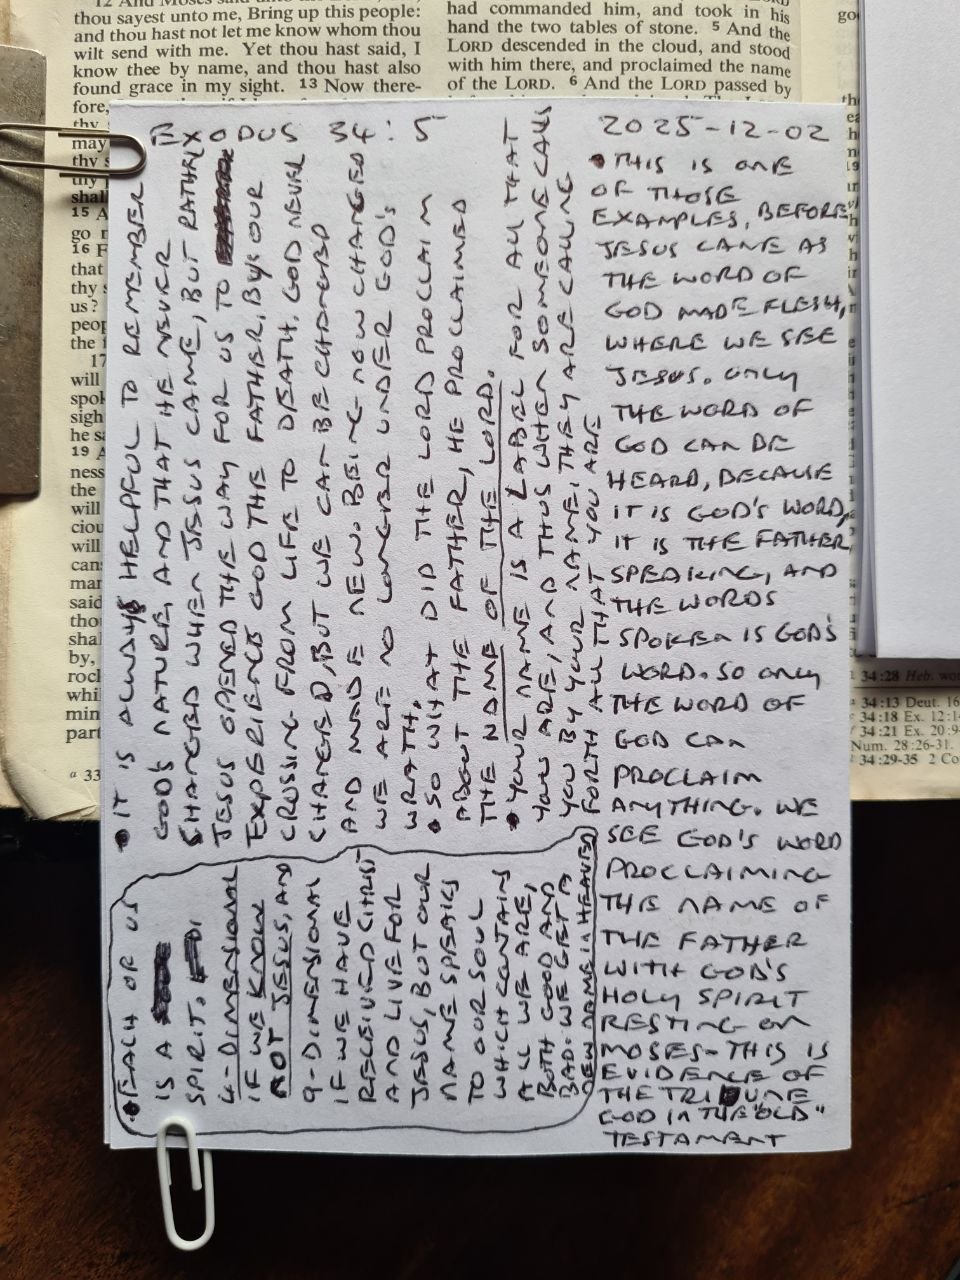 12 And Moses said unto the LORD,
thou sayest unto me, Bring up this people:
and thou hast not let me know whom thou
wilt send with me. Yet thou hast said, I
know thee by name, and thou hast also
found grace in my sight. 13 Now there-
fore,
thy
may
thy s
thy
shal
15 A
go n
16 F
that
thy s
us?
peop
the f
17
will
spok
sigh
he s
19 A
ness
the
will
ciou
will
can
mar
said
tho
shal
by,
rocl
whi
min
part
a 33
had commanded him, and took in his
hand the two tables of stone. 5 And the
LORD descended in the cloud, and stood
with him there, and proclaimed the name
of the LORD. 6 And the LORD passed by
go
EXODUS 34:5
2025-12-02
• IT IS ALWAYS HELPFUL TO REMEMBER
GOD'S NATURE, AND THAT HE NEVER
CHANGED WHEN JESUS CAME, BUT RATHER
JESUS OPENED THE WAY FOR US TO
EXPERIENCE GOD THE FATHER, BY OUR
CROSSING FROM LIFE TO DEATH. GOD NEVER
CHANGED, BUT WE CAN BE CHANGED
AND MADE NEW. BEING NOW CHANGED
WE ARE NO LONGER UNDER GOD'S
WRATH.
• SO WHAT DID THE LORD PROCLAIM
ABOUT THE FATHER, HE PROCLAIMED
THE NAME OF THE LORD.
• YOUR NAME IS A LABEL FOR ALL THAT
YOU ARE, AND THUS WHEN SOMEONE CALLS
YOU BY YOUR NAME, THEY ARE CALLING
FORTH ALL THAT YOU ARE
• EACH OF US
IS A
SPIRIT. DI
4-DIMENSIONAL
IF WE KNOW
NOT JESUS, AND
9-DIMENSIONAL
IF WE HAVE
RECEIVED CHRIST
AND LIVE FOR
JESUS, BUT OUR
NAME SPEAKS
TO OUR SOUL
WHICH CONTAINS
ALL WE ARE,
BOTH GOOD AND
BAD. WE GET A
NEW NAME IN HEAVEN
• THIS IS ONE
OF THOSE
EXAMPLES, BEFORE
JESUS CAME AS
THE WORD OF
GOD MADE FLESH,
WHERE WE SEE
JESUS. ONLY
THE WORD OF
GOD CAN BE
HEARD, BECAUSE
IT IS GOD'S WORD,
IT IS THE FATHER
SPEAKING, AND
THE WORDS
SPOKEN IS GOD'S
WORD. SO ONLY
THE WORD OF
GOD CAN
PROCLAIM
ANYTHING. WE
SEE GOD'S WORD
PROCLAIMING
THE NAME OF
THE FATHER
WITH GOD'S
HOLY SPIRIT
RESTING ON
MOSES - THIS IS
EVIDENCE OF
THE TRIUNE
GOD IN THE "OLD"
TESTAMENT
34:28 Heb. wo
34:13 Deut. 16
34:18 Ex. 12:1
34:21 Ex. 20:9
Num. 28:26-31.
34:29-35 2 Co